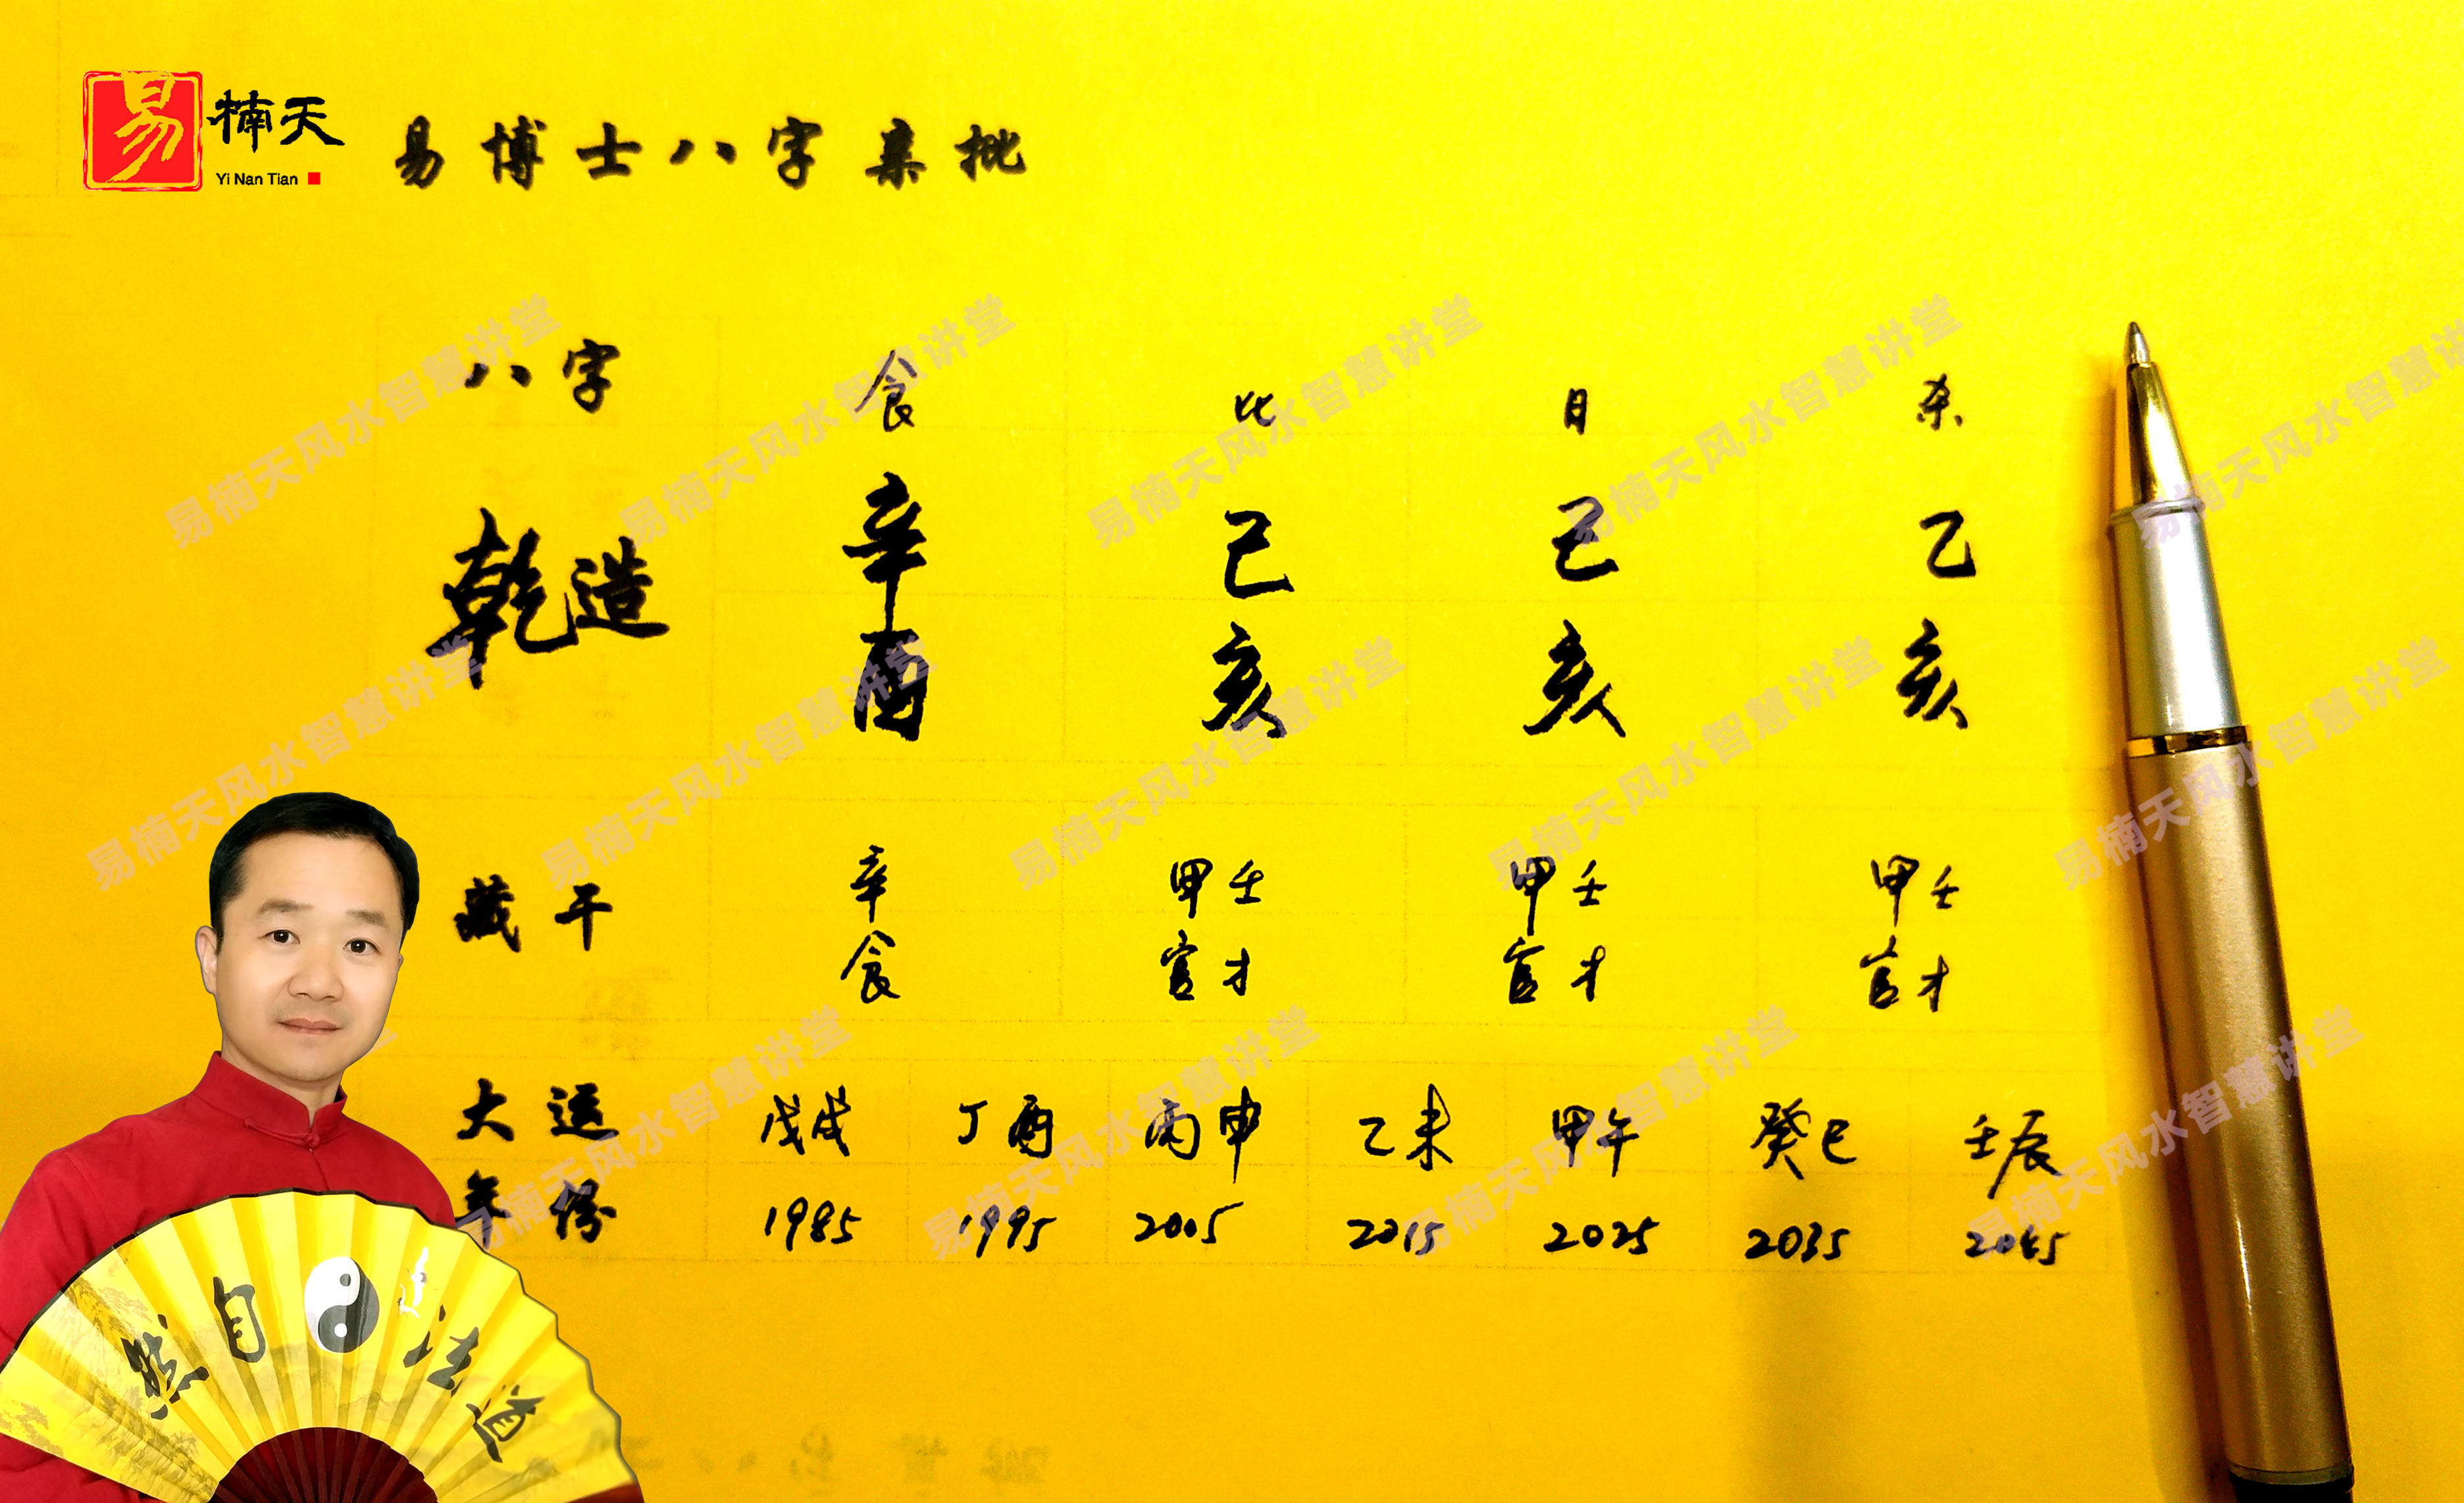 易 楠天
Yi Nan Tian
易博士八字集批
八字 食 比 日 杀
乾造 辛 己 己 乙
酉 亥 亥 亥
藏干 辛 甲壬 甲壬 甲壬
食 官才 官才 官才
大运 戊戌 丁酉 丙申 乙未 甲午 癸巳 壬辰
年份 1985 1995 2005 2015 2025 2035 2045
然自法道
易楠天风水智慧讲堂